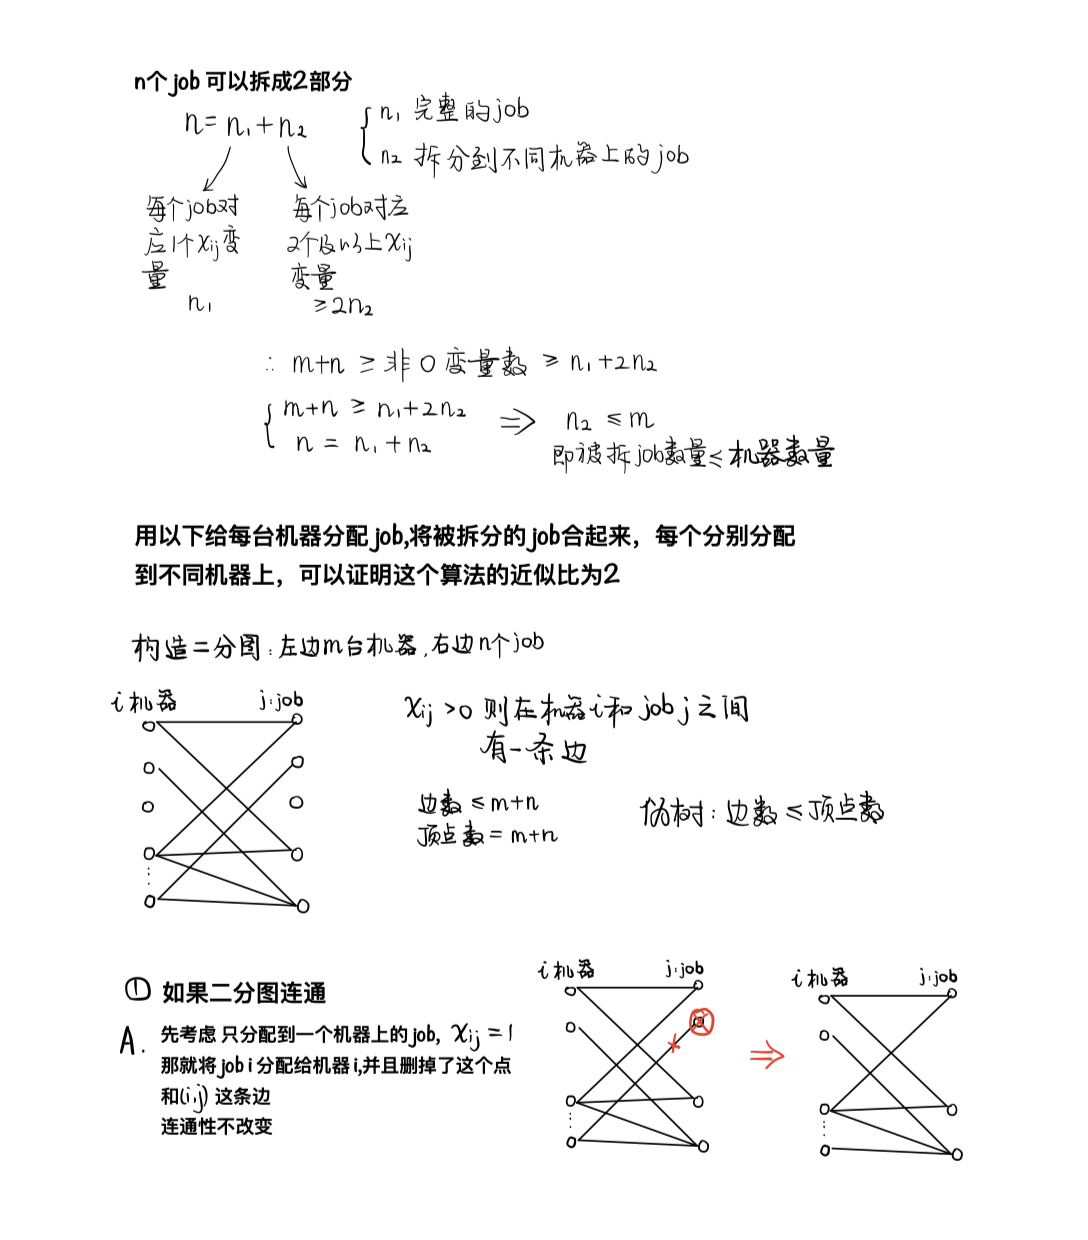 n个job 可以拆成2部分
n= n₁+n₂
n₁ 完整的job
n₂ 拆分到不同机器上的job
每个job对
应1个xij变
量
n₁
每个job对应
2个及以上xij
变量
≥2n₂
∴ m+n ≥ 非0变量数 ≥ n₁+2n₂
m+n ≥ n₁+2n₂
n = n₁+n₂
⇒ n₂ ≤ m
即被拆job数量≤机器数量
用以下给每台机器分配job,将被拆分的job合起来，每个分别分配
到不同机器上，可以证明这个算法的近似比为2
构造二分图:左边m台机器,右边n个job
i机器 j:job
xij >0 则在机器i和job j之间
有一条边
边数≤m+n
顶点数=m+n
伪树: 边数≤顶点数
① 如果二分图连通
A. 先考虑 只分配到一个机器上的job, xij=1
那就将job i 分配给机器i,并且删掉了这个点
和(i,j) 这条边
连通性不改变
i机器 j:job
⇒
i机器 j:job